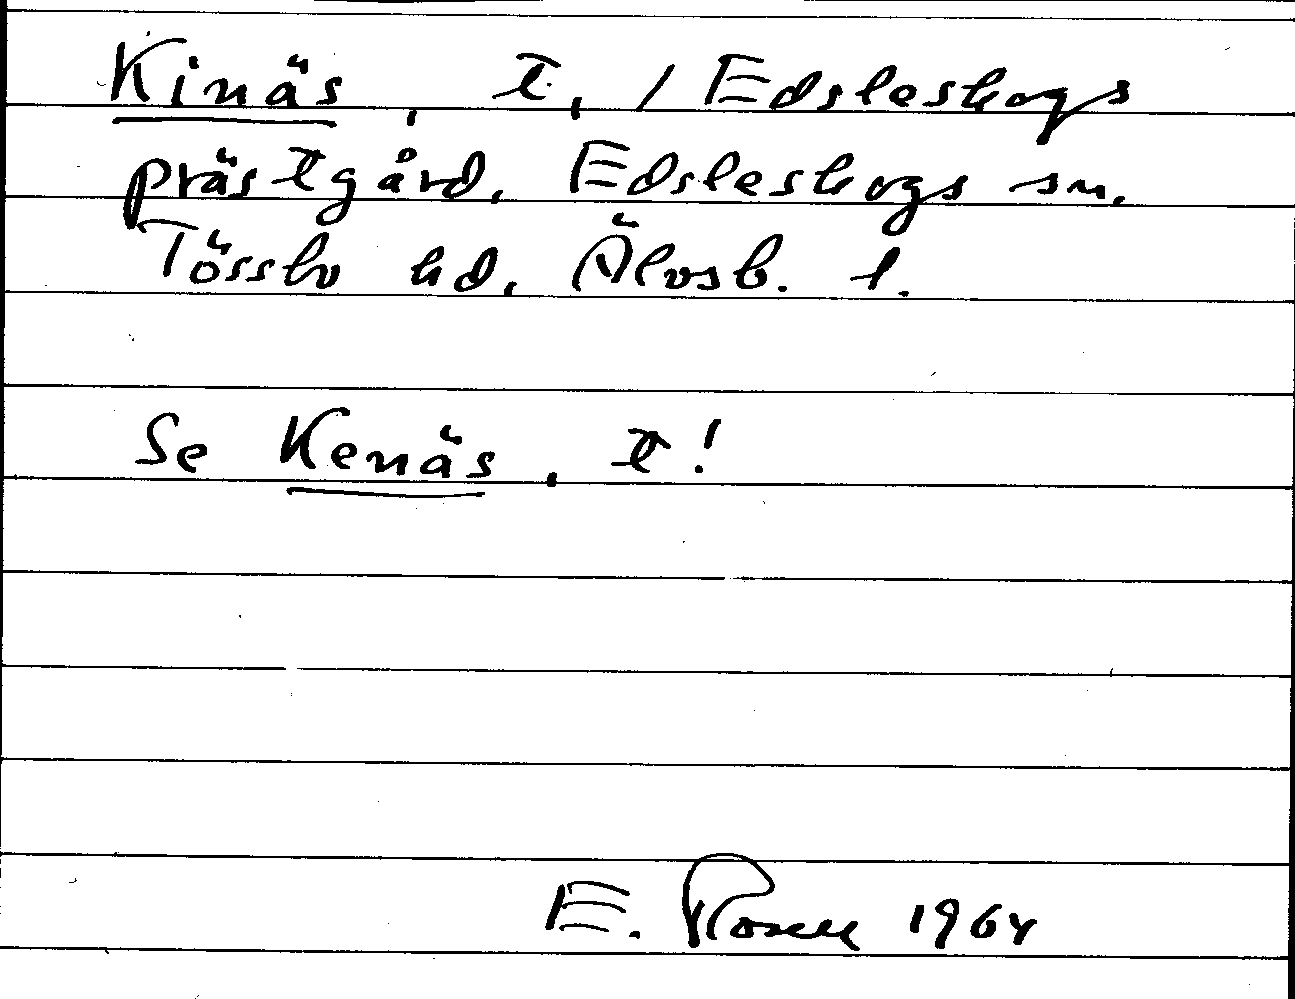 Kinäs, t, / Edsleskogs
prästgård, Edsleskogs sn.
Tössbo hd, Älvsb. l.
Se Kenäs, t!
E. Rosell 1964